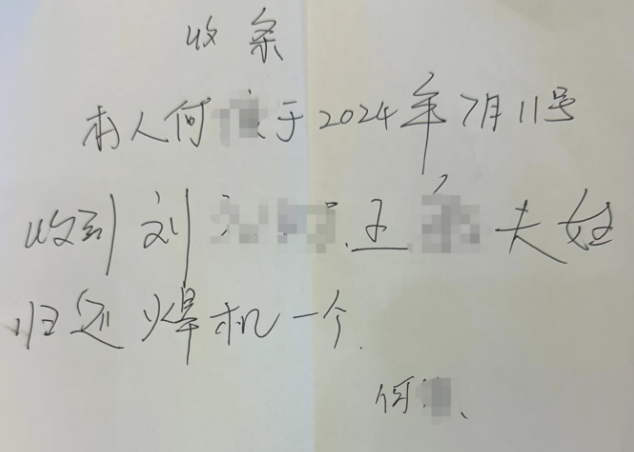 收条
本人何于2024年7月11号
收到刘、王夫妇
归还焊机一个.
何